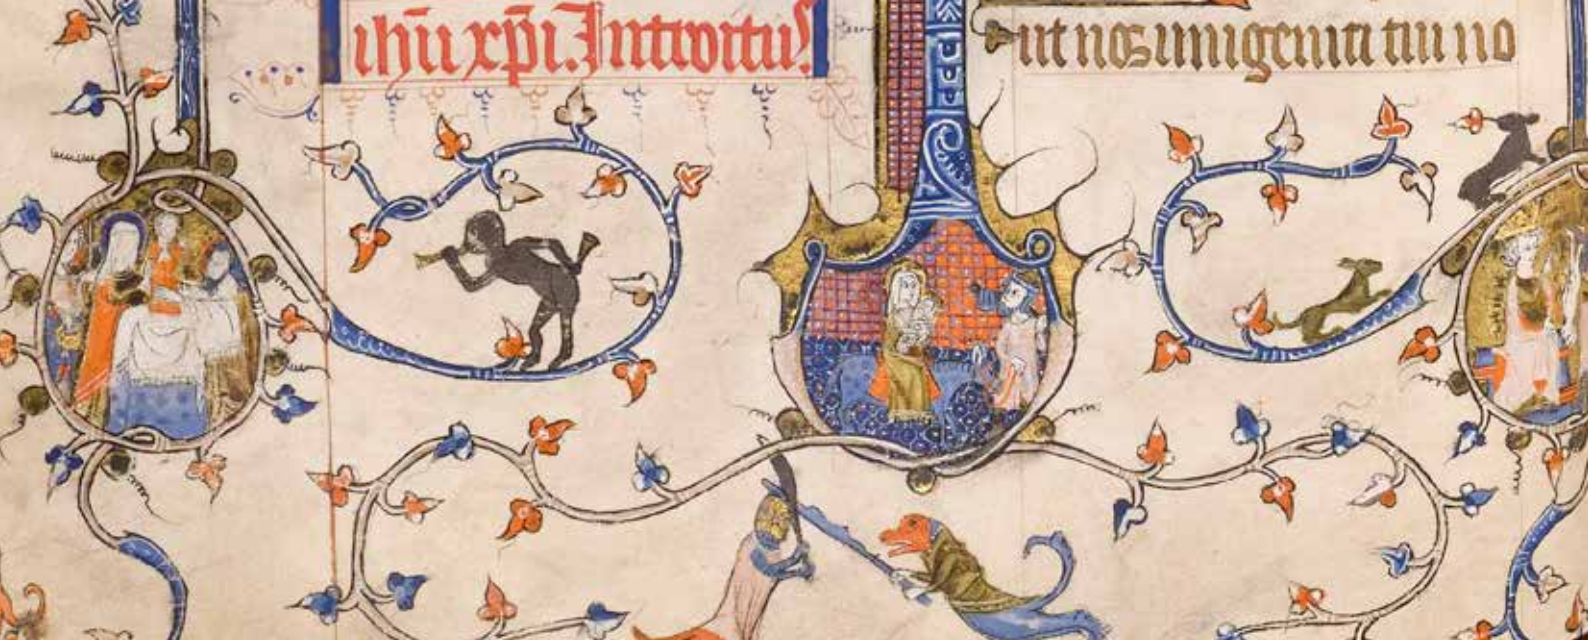 ihū xp̄i. Introitus.
ut nos unigeniti tui no